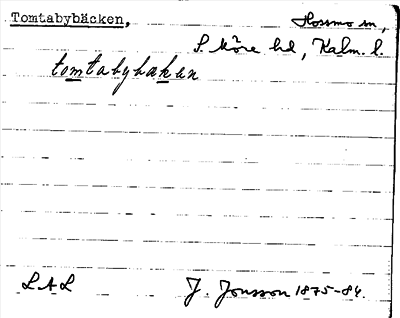 Tomtabybäcken, Hossmo sn,
S. Möre hd, Kalm. l.
tomtabybæken
LAL J. Jonsson 1875-84.